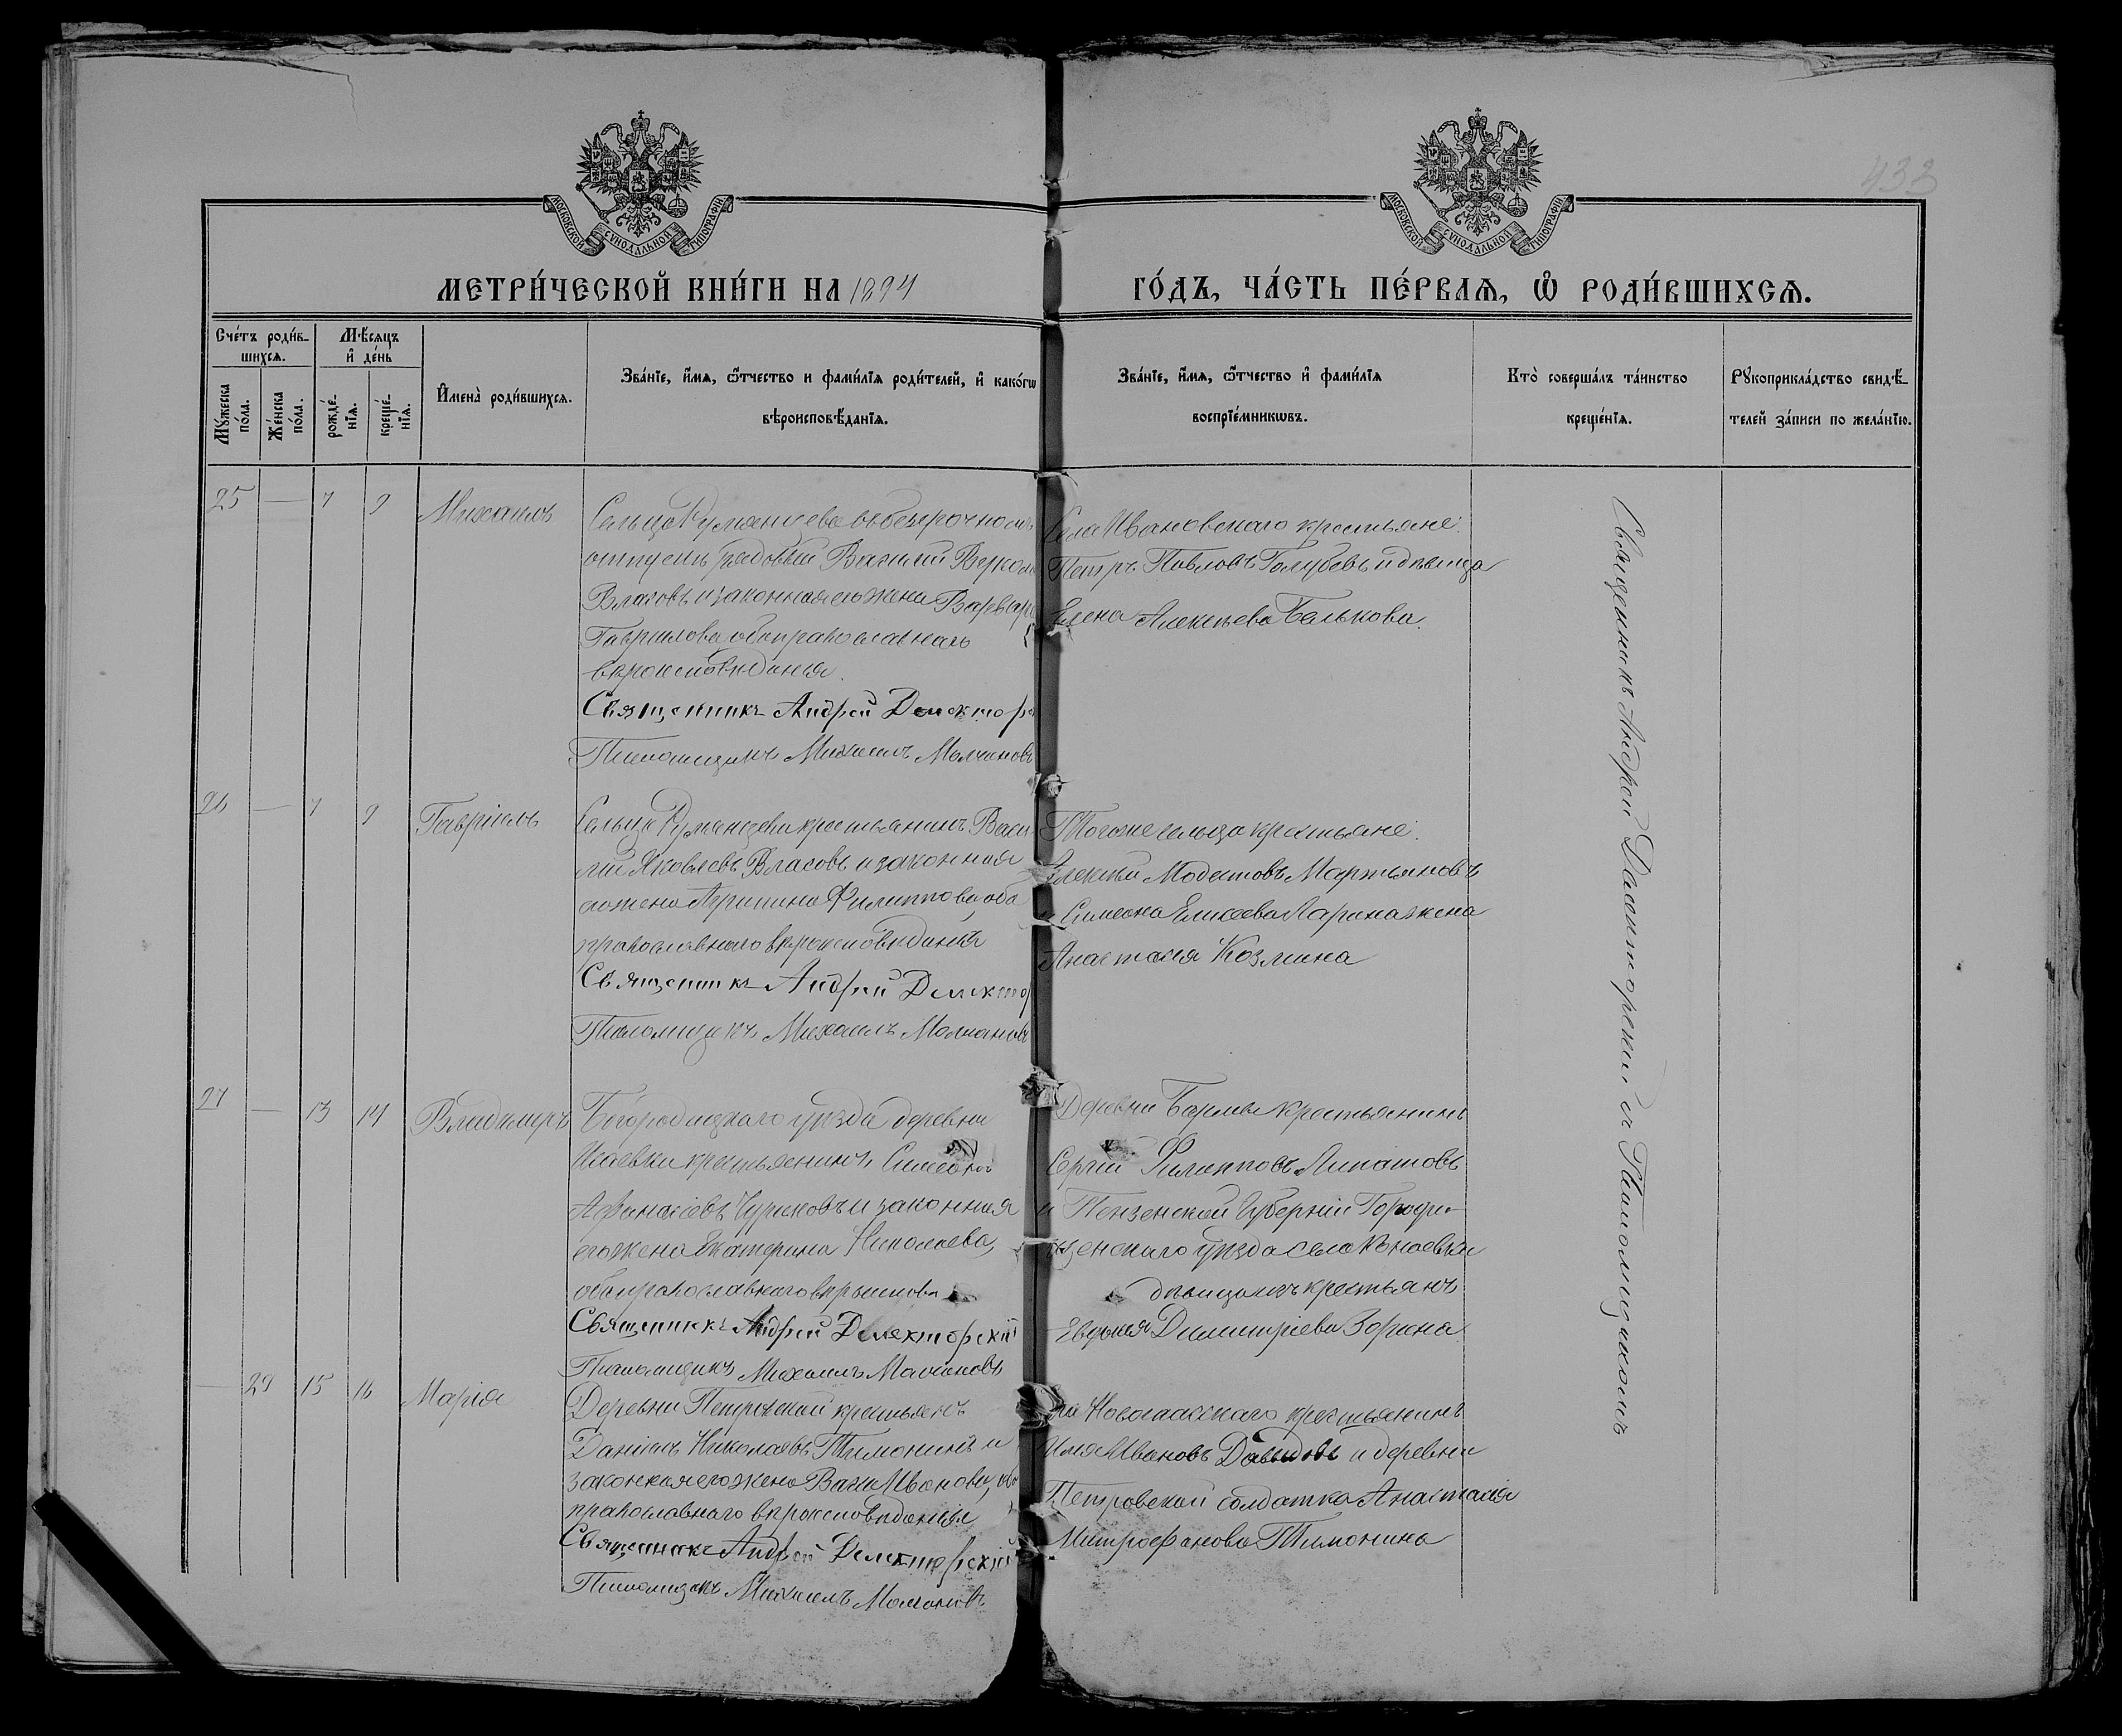 433
МОСКОВСКОЙ СѴНОДАЛЬНОЙ ТИПОГРАФІИ
МОСКОВСКОЙ СѴНОДАЛЬНОЙ ТИПОГРАФІИ
МЕТРИ́ЧЕСКОЙ КНИ́ГИ НА 1894
ГО́ДЪ, ЧА́СТЬ ПЕ́РВАѦ, Ѡ РОДИ́ВШИХСѦ.
Сче́тъ роди́в-
шихсѧ.
Мꙋ́жеска по́ла.
Же́нска по́ла.
Мѣ́сѧцъ
и҆ де́нь
рожде́-
нїѧ.
креще́-
нїѧ.
И҆мена̀ роди́вшихсѧ.
Зва́нїе, и҆́мѧ, ѻ҆́тчество и фами́лїѧ роди́телей, и҆ како́гѡ
вѣроисповѣ́данїѧ.
Зва́нїе, и҆́мѧ, ѻ҆́тчество и҆ фами́лїѧ
воспрїе́мникѡвъ.
Кто̀ соверша́лъ та́инство
креще́нїѧ.
Рꙋкоприкла́дство свидѣ́-
телей за́писи по жела́нїю.
25 — 7 9 Михаилъ
Сельца Румянцева въ безсрочномъ
отпуску рядовый Василий
Власовъ и законная его жена Варвара
Гаврилова оба православнаго
вероисповеданія.
Священникъ Андрей Делектор
Псаломщикъ Михаилъ Молчановъ
Села Ивановскаго крестьяне:
Петръ Павловъ Голубевъ и девица
Елена Алексеева Белькова.
26 — 7 9 Гавріилъ
Сельца Румянцева крестьянинъ Васи
лій Яковлевъ Власовъ и законная
его жена Агрипина Филиппова, оба
православнаго вероисповеданія
Священникъ Андрей Делектор
Псаломщикъ Михаилъ Молчановъ
Тогоже сельца крестьяне:
Алексей Модестовъ Мартьяновъ
и Симеона Елисеева Ларина жена
Анастасія Козмина
27 — 13 14 Владимиръ
Богородицкаго уезда деревни
Исаевки крестьянинъ Симеонъ
Афанасіевъ Чуриковъ и законная
его жена Екатерина Николаева,
оба православнаго вероиспове
Священникъ Андрей Делекторскій
Псаломщикъ Михаилъ Молчановъ
Деревни крестьянинъ
Сергій Филипповъ Липатовъ
и Пензенской Губерніи Городи-
щенскаго уезда села Канаевки
крестьянъ
Евдокія Димитріева Зорина.
— 29 15 16 Марія
Деревни Петровской крестьянъ
Даніилъ Николаевъ Тимонинъ и
законная его жена Васса Иванова, оба
православнаго вероисповеданія
Священникъ Андрей Делекторскій
Псаломщикъ Михаилъ Молчановъ
Новоспасскаго крестьянинъ
Илья Ивановъ Давыдовъ и деревни
Петровской солдатка Анастасія
Митрофанова Тимонина
Священникъ Андрей Делекторскій съ Псаломщикомъ